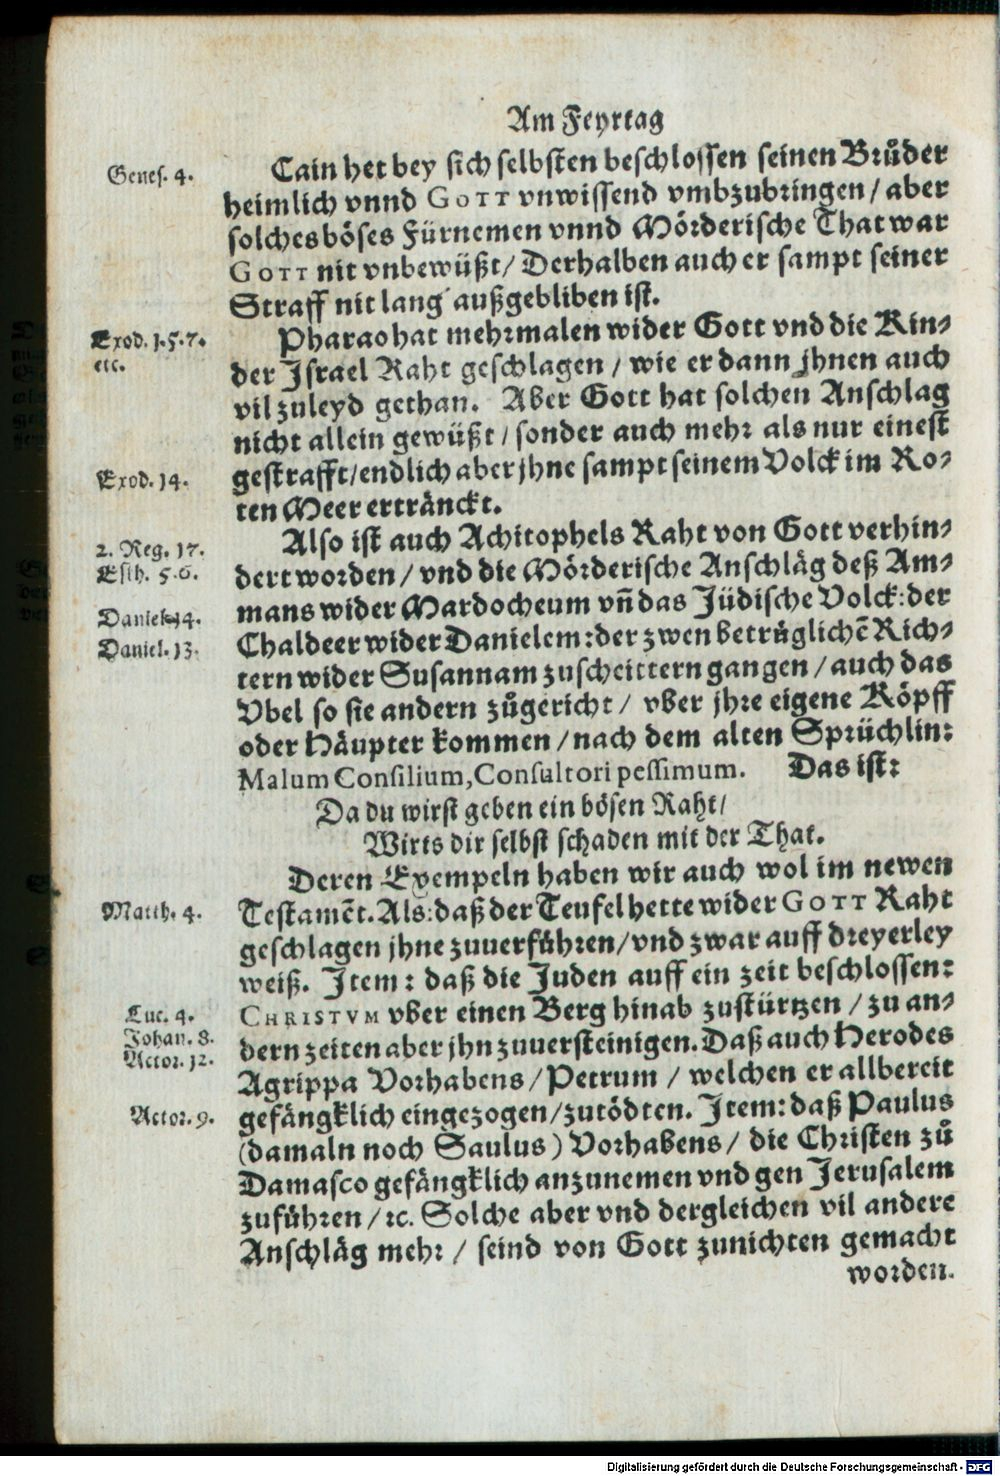 Am Feyrtag
Genes. 4.
Cain het bey sich selbsten beschlossen seinen Brůder
heimlich vnnd GOTT vnwissend vmbzubringen / aber
solches böses Fürnemen vnnd Mörderische That war
GOTT nit vnbewüßt / Derhalben auch er sampt seiner
Straff nit lang außgebliben ist.
Exod. 1. 5. 7.
etc.
Pharao hat mehrmalen wider Gott vnd die Kin-
der Israel Raht geschlagen / wie er dann jhnen auch
vil zuleyd gethan. Aber Gott hat solchen Anschlag
nicht allein gewüßt / sonder auch mehr als nur einest
Exod. 14.
gestrafft / endlich aber jhne sampt seinem Volck im Ro-
ten Meer ertränckt.
2. Reg. 17.
Esth. 5. 6.
Daniel. 14.
Daniel. 13.
Also ist auch Achitophels Raht von Gott verhin-
dert worden / vnd die Mörderische Anschläg deß Am-
mans wider Mardocheum vñ das Jüdische Volck: der
Chaldeer wider Danielem: der zwen betrůglichē Rich-
tern wider Susannam zuscheittern gangen / auch das
Vbel so sie andern zůgericht / vber jhre eigene Köpff
oder Häupter kommen / nach dem alten Sprüchlin:
Malum Consilium, Consultori pessimum. Das ist:
Da du wirst geben ein bösen Raht /
Wirts dir selbst schaden mit der That.
Deren Exempeln haben wir auch wol im newen
Matth. 4.
Testamēt. Als: daß der Teufel hette wider GOTT Raht
geschlagen jhne zuuerführen / vnd zwar auff dreyerley
weiß. Item: daß die Juden auff ein zeit beschlossen:
Luc. 4.
Johan. 8.
Actor. 12.
CHRISTVM vber einen Berg hinab zustürtzen / zu an-
dern zeiten aber jhn zuuersteinigen. Daß auch Herodes
Agrippa Vorhabens / Petrum / welchen er allbereit
Actor. 9.
gefängklich eingezogen / zutödten. Item: daß Paulus
(damaln noch Saulus) Vorhabens / die Christen zů
Damasco gefängklich anzunemen vnd gen Jerusalem
zuführen / ꝛc. Solche aber vnd dergleichen vil andere
Anschläg mehr / seind von Gott zunichten gemacht
worden.
Digitalisierung gefördert durch die Deutsche Forschungsgemeinschaft - DFG